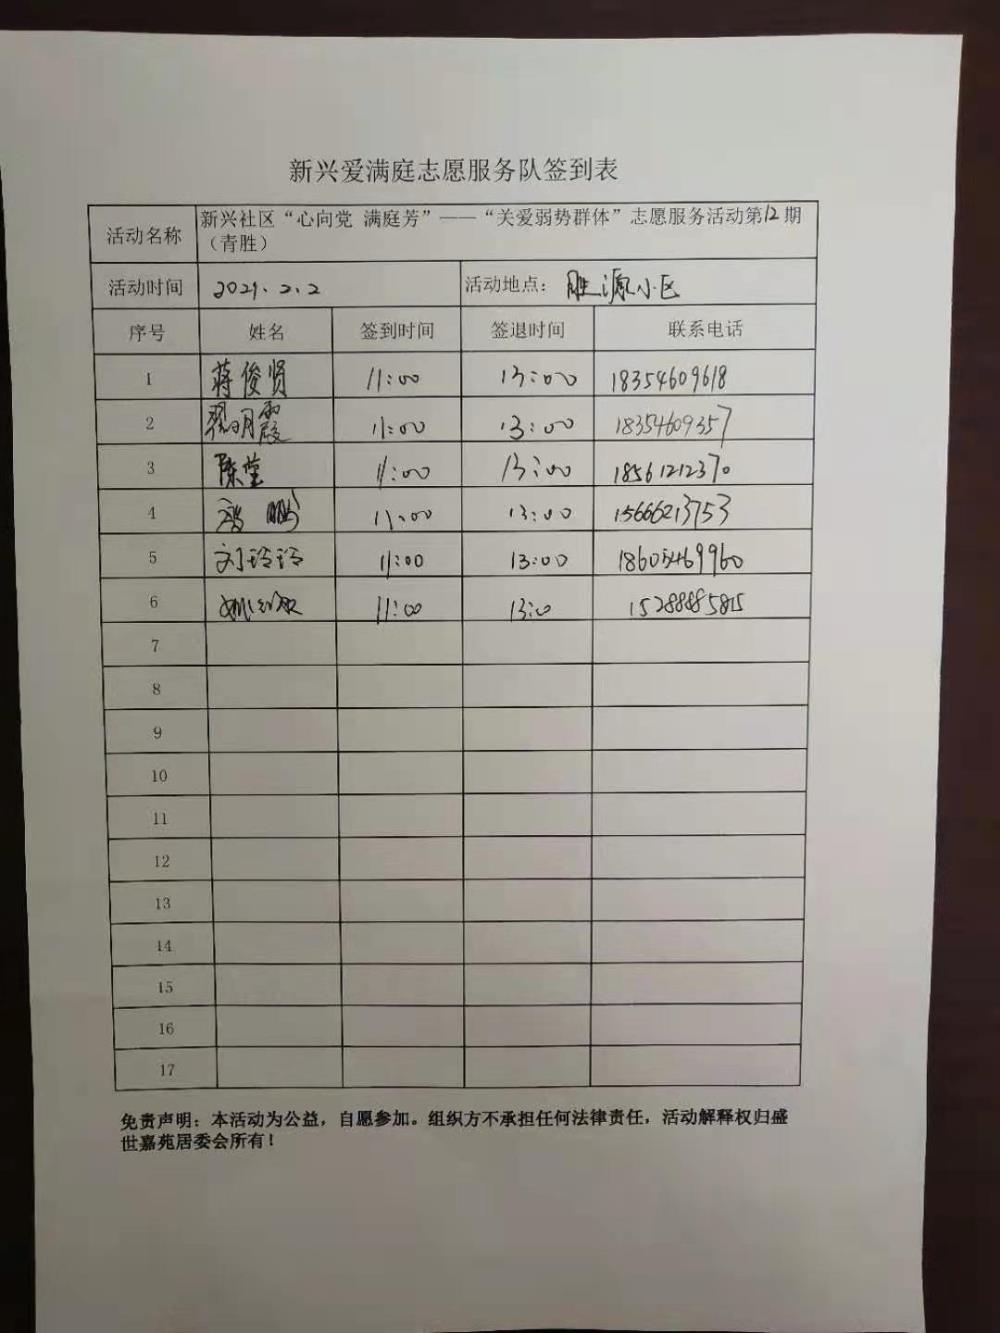 新兴爱满庭志愿服务队签到表
活动名称 新兴社区“心向党 满庭芳”——“关爱弱势群体”志愿服务活动第12期
（青胜）
活动时间 2021.2.2 活动地点： 胜源小区
序号 姓名 签到时间 签退时间 联系电话
1 蒋俊贤 11:00 13:00 18354609618
2 翟明霞 11:00 13:00 18354609357
3 陈莹 11:00 13:00 18561212370
4 鹏 11:00 13:00 15666213753
5 刘玲玲 11:00 13:00 18605469960
6 姚 11:00 13:0 15288885815
7
8
9
10
11
12
13
14
15
16
17
免责声明：本活动为公益，自愿参加。组织方不承担任何法律责任，活动解释权归盛
世嘉苑居委会所有！